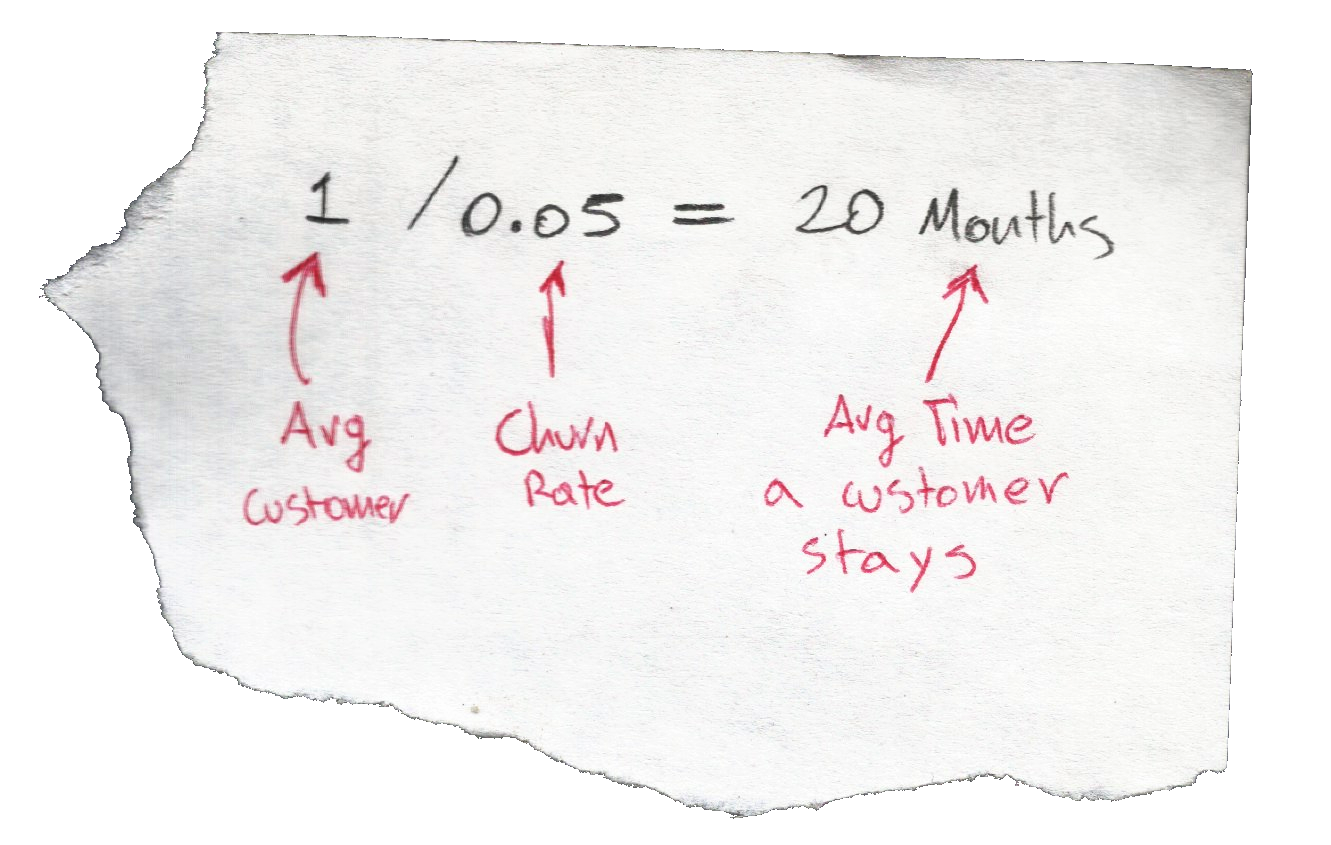 1 / 0.05 = 20 Months
Avg
Customer
Churn
Rate
Avg Time
a customer
stays